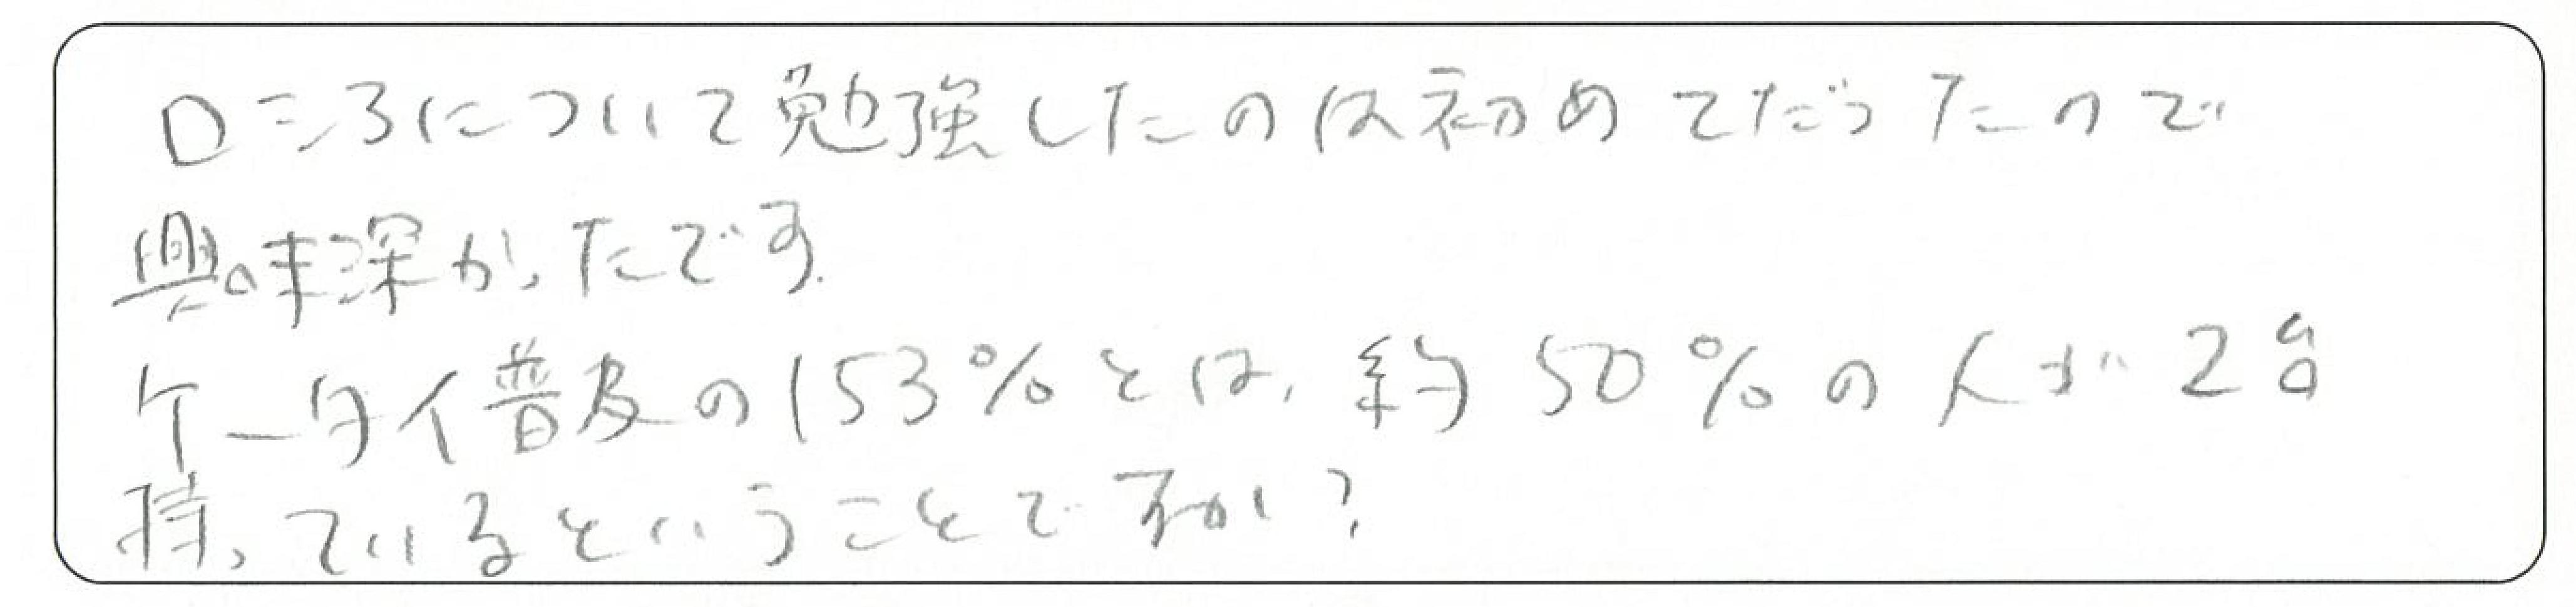 ロシアについて勉強したのは初めてだったので
興味深かったです.
ケータイ普及の153%とは, 約50%の人が2台
持っているということですか?